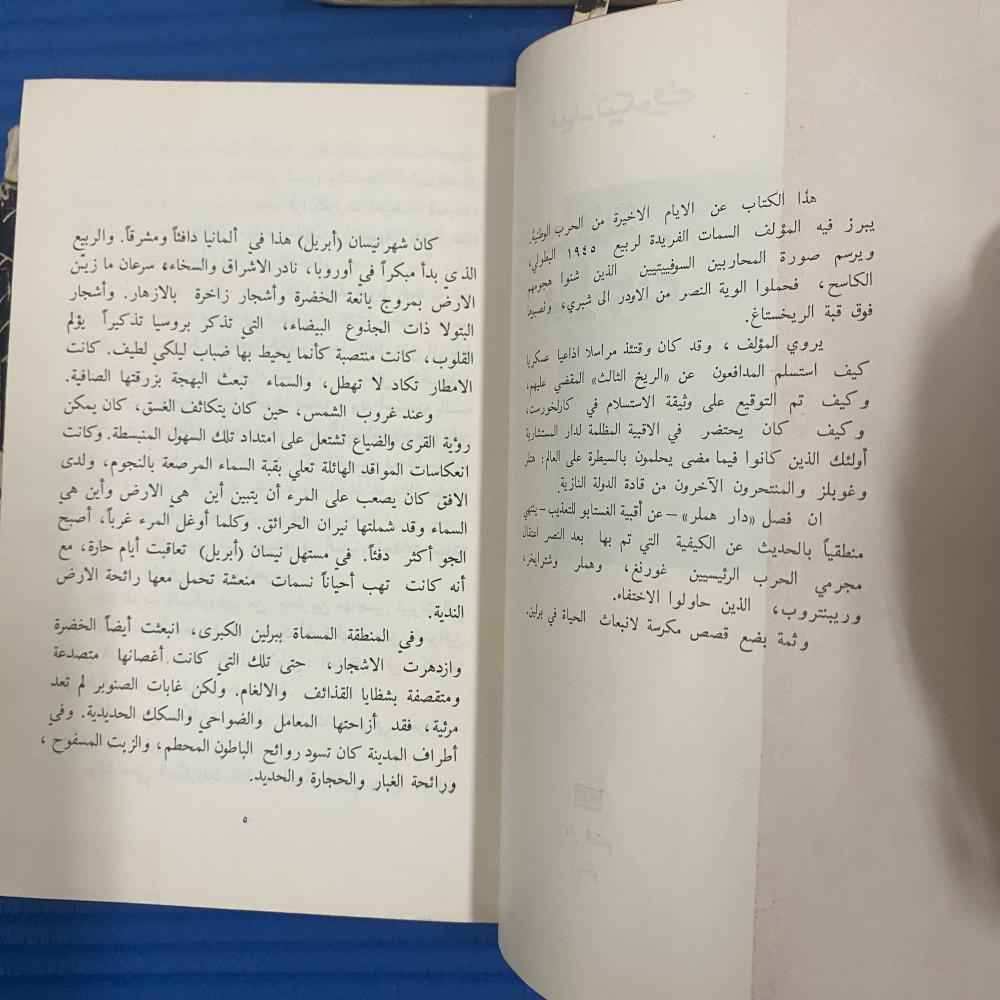 هذا الكتاب عن الايام الاخيرة من الحرب الوطنية.
يبرز فيه المؤلف السمات الفريدة لربيع ١٩٤٥ البطولي،
ويرسم صورة المحاربين السوفييتيين الذين شنوا هجومهم
الكاسح، فحملوا الوية النصر من الاودر الى شبري، ونصبوها
فوق قبة الريخستاغ.
يروي المؤلف، وقد كان وقتئذ مراسلا اذاعيا عسكريا
كيف استسلم المدافعون عن «الريخ الثالث» المقضي عليهم،
وكيف تم التوقيع على وثيقة الاستسلام في كارلخورت،
وكيف كان يحتضر في الاقبية المظلمة لدار المستشارية
أولئك الذين كانوا فيما مضى يحلمون بالسيطرة على العالم: هتلر
وغوبلز والمنتحرون الآخرون من قادة الدولة النازية.
ان فصل «دار هملر» – عن أقبية الغستابو للتعذيب – ينتهي
منطقياً بالحديث عن الكيفية التي تم بها بعد النصر اعتقال
مجرمي الحرب الرئيسيين غورنغ، وهملر وشترايخر،
وريبنتروب، الذين حاولوا الاختفاء.
وثمة بضع قصص مكرسة لانبعاث الحياة في برلين.
كان شهر نيسان (أبريل) هذا في ألمانيا دافئاً ومشرقاً. والربيع
الذي بدأ مبكراً في أوروبا، نادر الاشراق والسخاء، سرعان ما زيّن
الارض بمروج يانعة الخضرة وأشجار زاخرة بالازهار. وأشجار
البتولا ذات الجذوع البيضاء، التي تذكر بروسيا تذكيراً يؤلم
القلوب، كانت منتصبة كأنما يحيط بها ضباب ليلكي لطيف. كانت
الامطار تكاد لا تهطل، والسماء تبعث البهجة بزرقتها الصافية.
وعند غروب الشمس، حين كان يتكاثف الغسق، كان يمكن
رؤية القرى والضياع تشتعل على امتداد تلك السهول المنبسطة. وكانت
انعكاسات المواقد الهائلة تعلي بقبة السماء المرصعة بالنجوم، ولدى
الافق كان يصعب على المرء أن يتبين أين هي الارض وأين هي
السماء وقد شملتها نيران الحرائق. وكلما أوغل المرء غرباً، أصبح
الجو أكثر دفئاً. في مستهل نيسان (أبريل) تعاقبت أيام حارة، مع
أنه كانت تهب أحياناً نسمات منعشة تحمل معها رائحة الارض
الندية.
وفي المنطقة المسماة ببرلين الكبرى، انبعثت أيضاً الخضرة
وازدهرت الاشجار، حتى تلك التي كانت أغصانها متصدعة
ومتقصفة بشظايا القذائف والالغام. ولكن غابات الصنوبر لم تعد
مرئية، فقد أزاحتها المعامل والضواحي والسكك الحديدية. وفي
أطراف المدينة كان تسود روائح الباطون المحطم، والزيت المسفوح،
ورائحة الغبار والحجارة والحديد.
٥